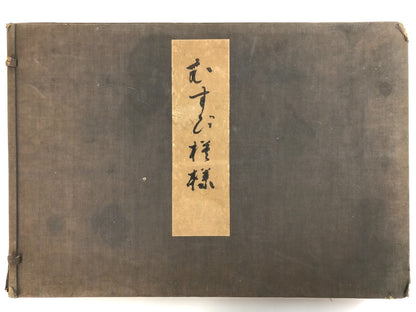 むすび模様